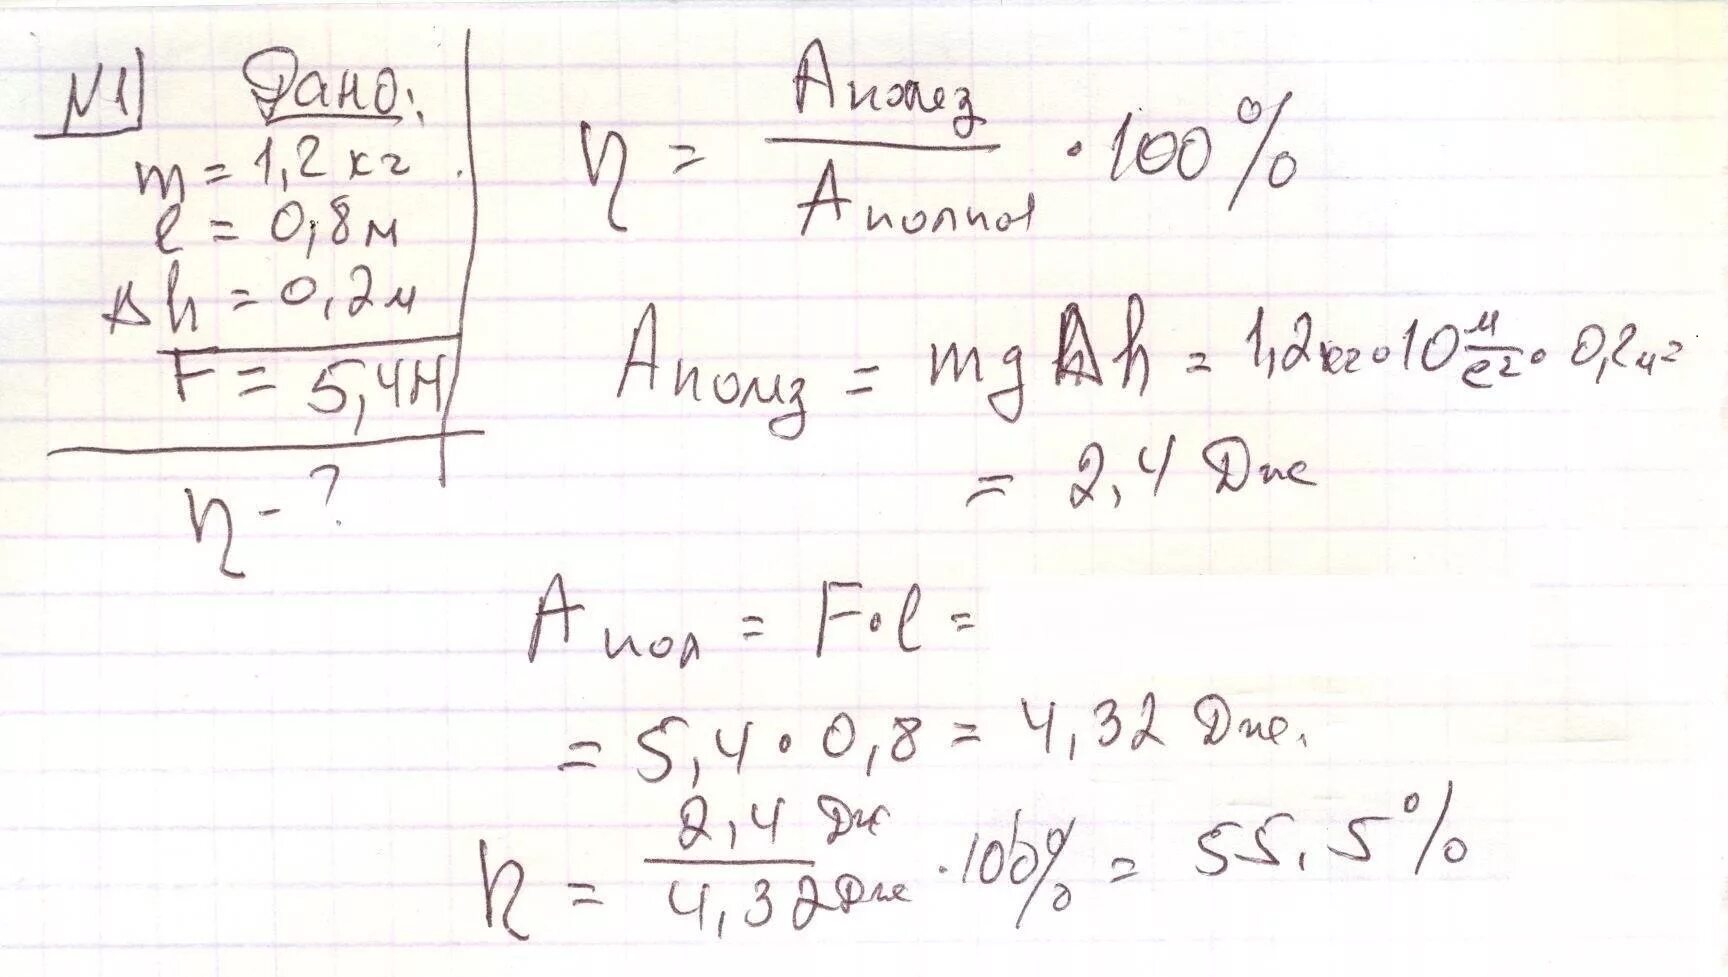 №1 Дано:
m = 1,2 кг
l = 0,8 м
Δh = 0,2 м
F = 5,4Н
η - ?
η = Aполез / Aполная · 100%
Aполез = mgΔh = 1,2 кг · 10 м/с² · 0,2 м =
= 2,4 Дж
Aпол = F·l =
= 5,4 · 0,8 = 4,32 Дж.
η = 2,4 Дж / 4,32 Дж · 100% = 55,5%